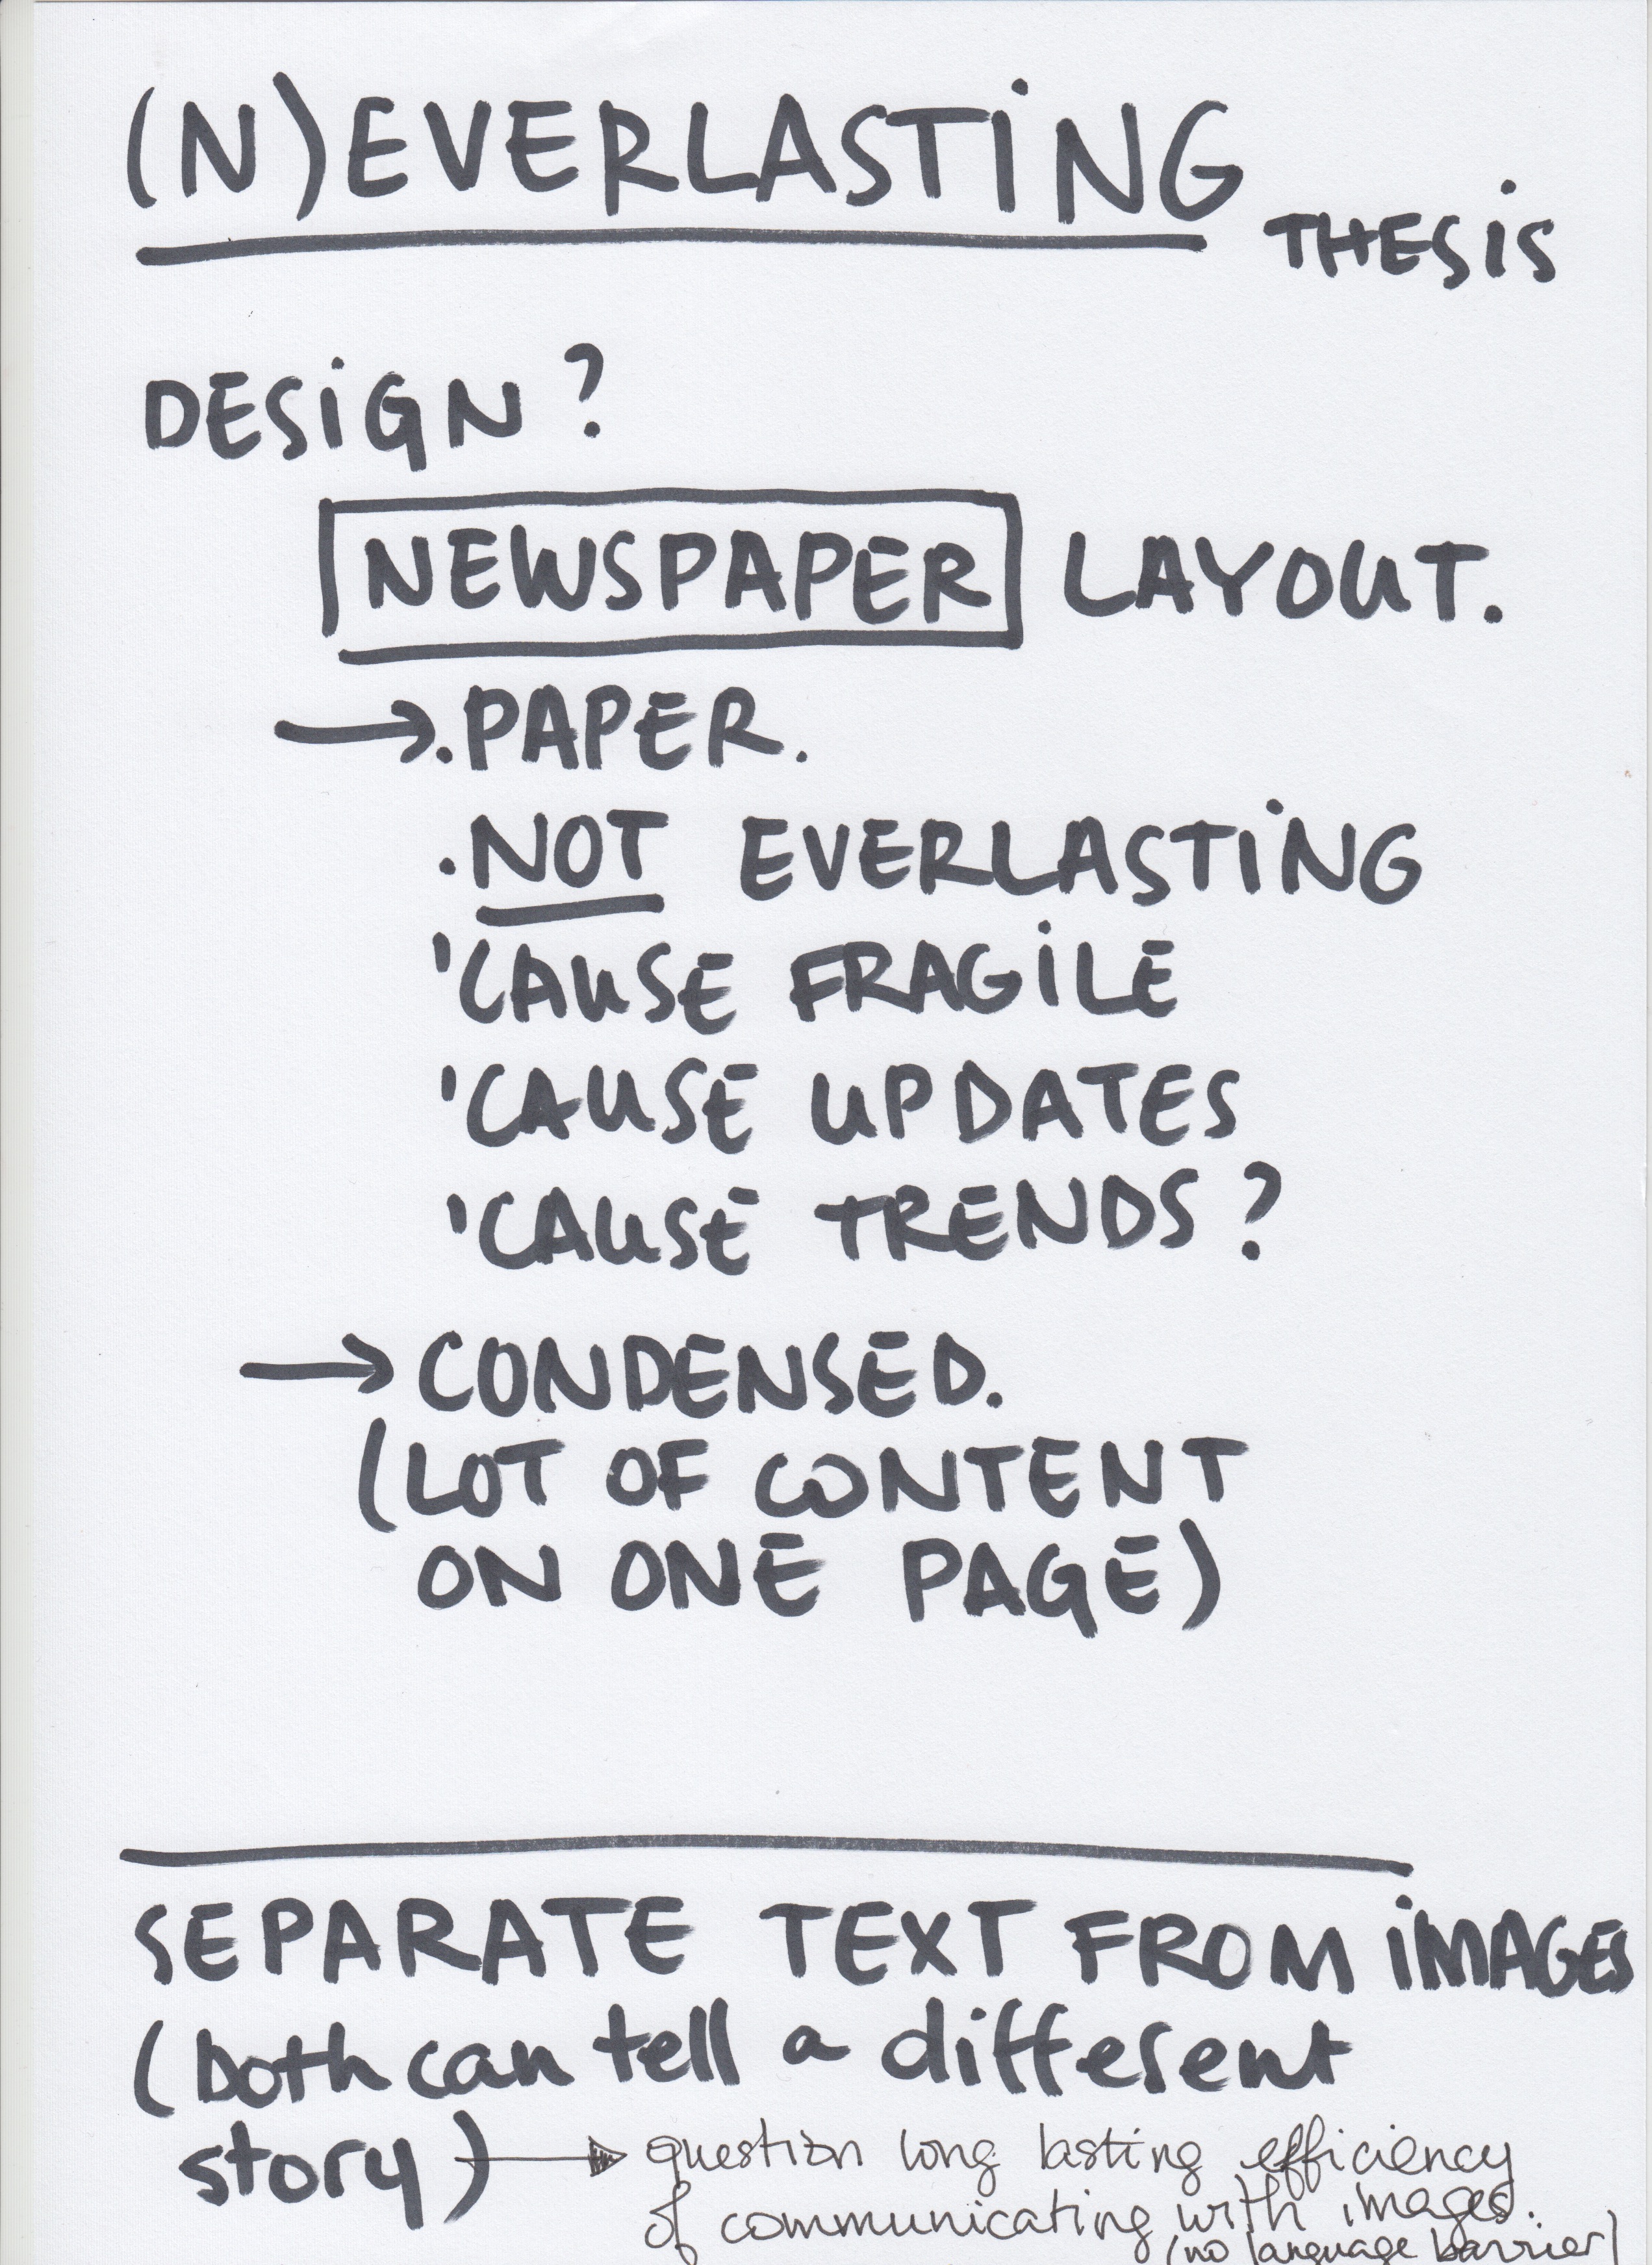 (N)EVERLASTING THESIS
DESIGN?
NEWSPAPER LAYOUT.
→ .PAPER.
.NOT EVERLASTING
'CAUSE FRAGILE
'CAUSE UPDATES
'CAUSE TRENDS?
→ CONDENSED.
(LOT OF CONTENT
ON ONE PAGE)
SEPARATE TEXT FROM IMAGES
(both can tell a different
story) → question long lasting efficiency
of communicating with images.
(no language barrier)